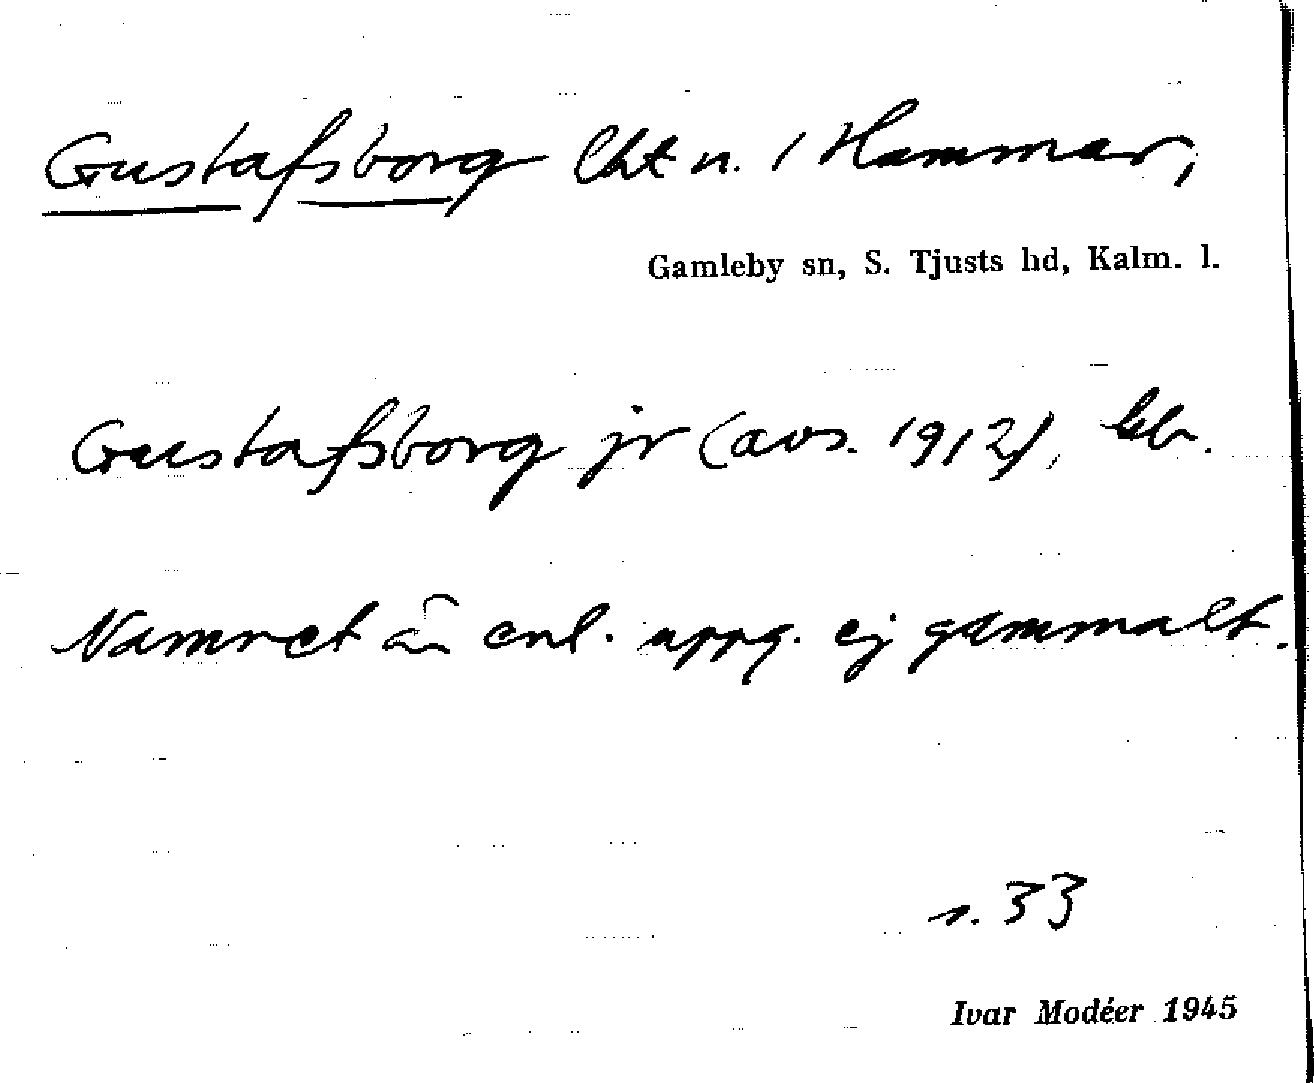 Gustafsborg lht n. 1 Hammar,
Gamleby sn, S. Tjusts hd, Kalm. l.
Gustafsborg jr (avs. 1912),
Namnet är enl. uppg. ej gammalt.
s. 33
Ivar Modéer 1945